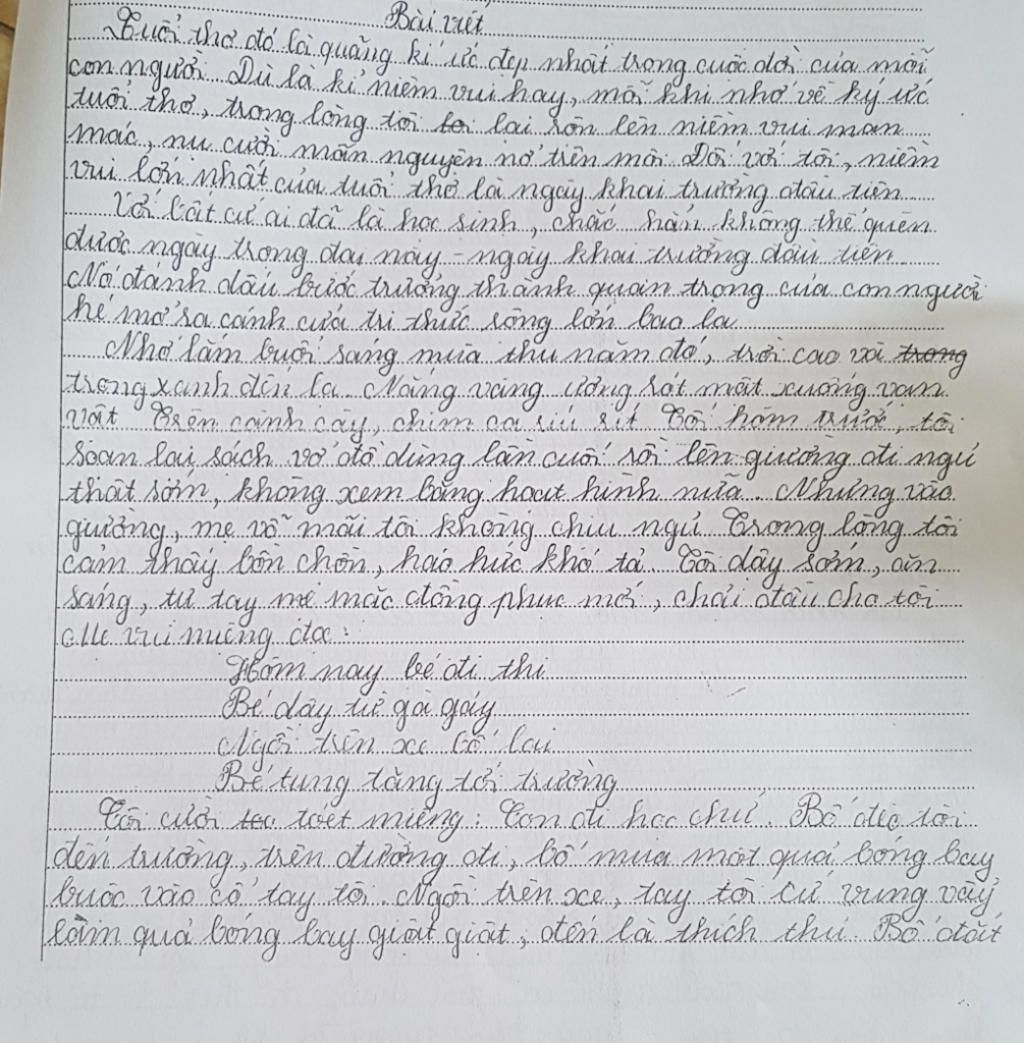 Bài viết
Tuổi thơ đó là quãng kí ức đẹp nhất trong cuộc đời của mỗi
con người. Dù là kỉ niệm vui hay, mỗi khi nhớ về ký ức
tuổi thơ, trong lòng tôi lại rộn lên niềm vui man
mác, nụ cười mãn nguyện nở trên môi. Đối với tôi, niềm
vui lớn nhất của tuổi thơ là ngày khai trường đầu tiên
Với bất cứ ai đã là học sinh, chắc hẳn không thể quên
được ngày trọng đại này - ngày khai trường đầu tiên
Nó đánh dấu bước trưởng thành quan trọng của con người
hé mở ra cánh cửa tri thức rộng lớn bao la
Nhớ lắm buổi sáng mùa thu năm đó, trời cao và
trong xanh đến lạ. Nắng vàng ươm rót mật xuống vạn
vật. Trên cành cây, chim ca ríu rít. Tối hôm trước, tôi
soạn lại sách vở đồ dùng lần cuối rồi lên giường đi ngủ
thật sớm, không xem băng hoạt hình nữa. Nhưng vào
giường, mẹ vỗ mãi tôi không chịu ngủ. Trong lòng tôi
cảm thấy bồn chồn, háo hức khó tả. Tôi dậy sớm, ăn
sáng, tự tay mẹ mặc đồng phục mới, chải đầu cho tôi
Mẹ vui miệng đọc:
Hôm nay bé đi thi
Bé dậy từ gà gáy
Ngồi trên xe bố lai
Bé tung tăng tới trường
Tôi cười toét miệng: Con đi học chứ. Bố đèo tôi
đến trường, trên đường đi, bố mua một quả bóng bay
buộc vào cổ tay tôi. Ngồi trên xe, tay tôi cứ vung vẩy
làm quả bóng bay giật giật, đến là thích thú. Bố dắt